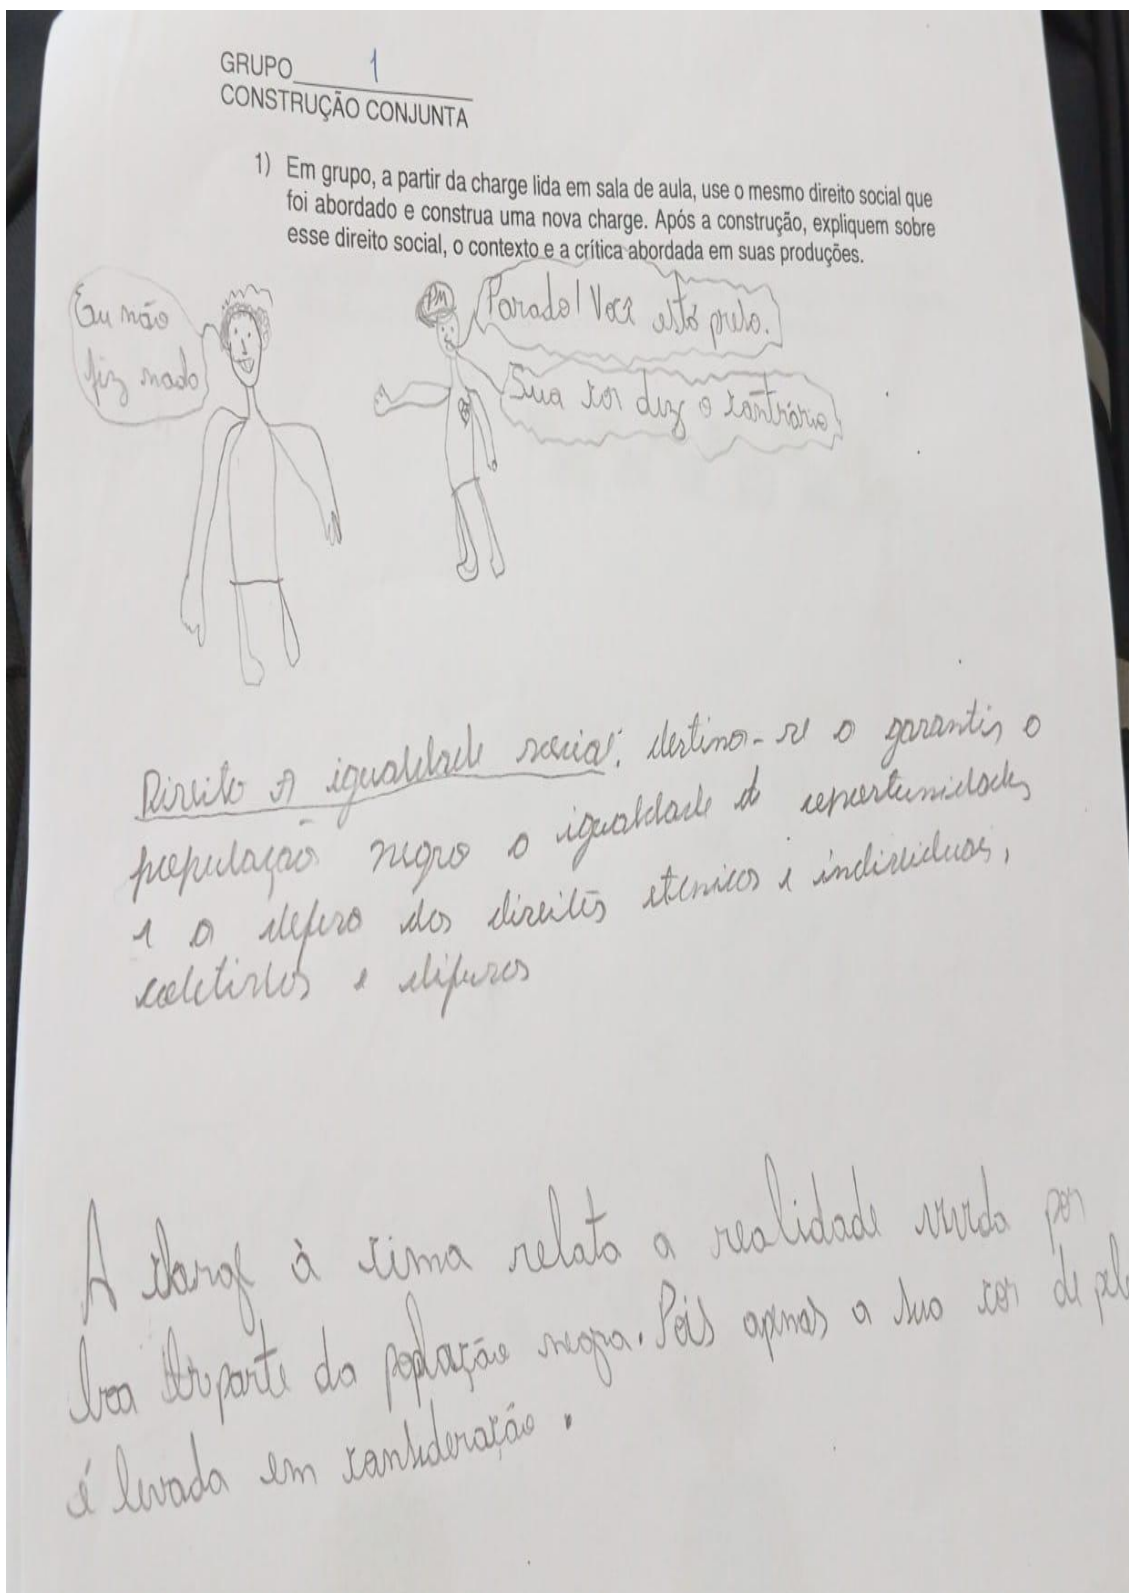 GRUPO 1
CONSTRUÇÃO CONJUNTA
1) Em grupo, a partir da charge lida em sala de aula, use o mesmo direito social que
foi abordado e construa uma nova charge. Após a construção, expliquem sobre
esse direito social, o contexto e a crítica abordada em suas produções.
Eu não
fiz nada
PM
Parado! Você está preso.
Sua cor diz o contrário!
Direito A igualdade social: destina-se a garantir a
população negra a igualdade de oportunidades,
e a defesa dos direitos etenicos e individuais,
coletivos e difusos
A charge à cima relata a realidade vivida por
boa parte da poplação negra. Pois apenas a sua cor de pele
é levada em consideração.